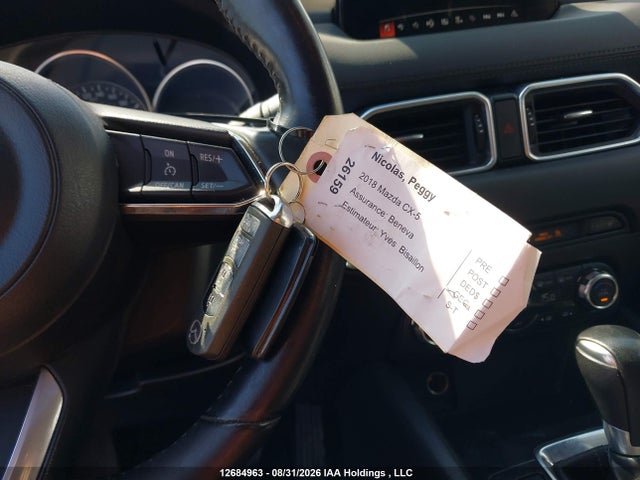 ON
RES/+
OFF/CAN
SET/-
26159
Nicolas, Peggy
2018 Mazda CX-5
Assurance: Beneva
Estimateur: Yves Bisaillon
PRE
POST
DEDS
S-T
12684963 - 08/31/2026 IAA Holdings , LLC